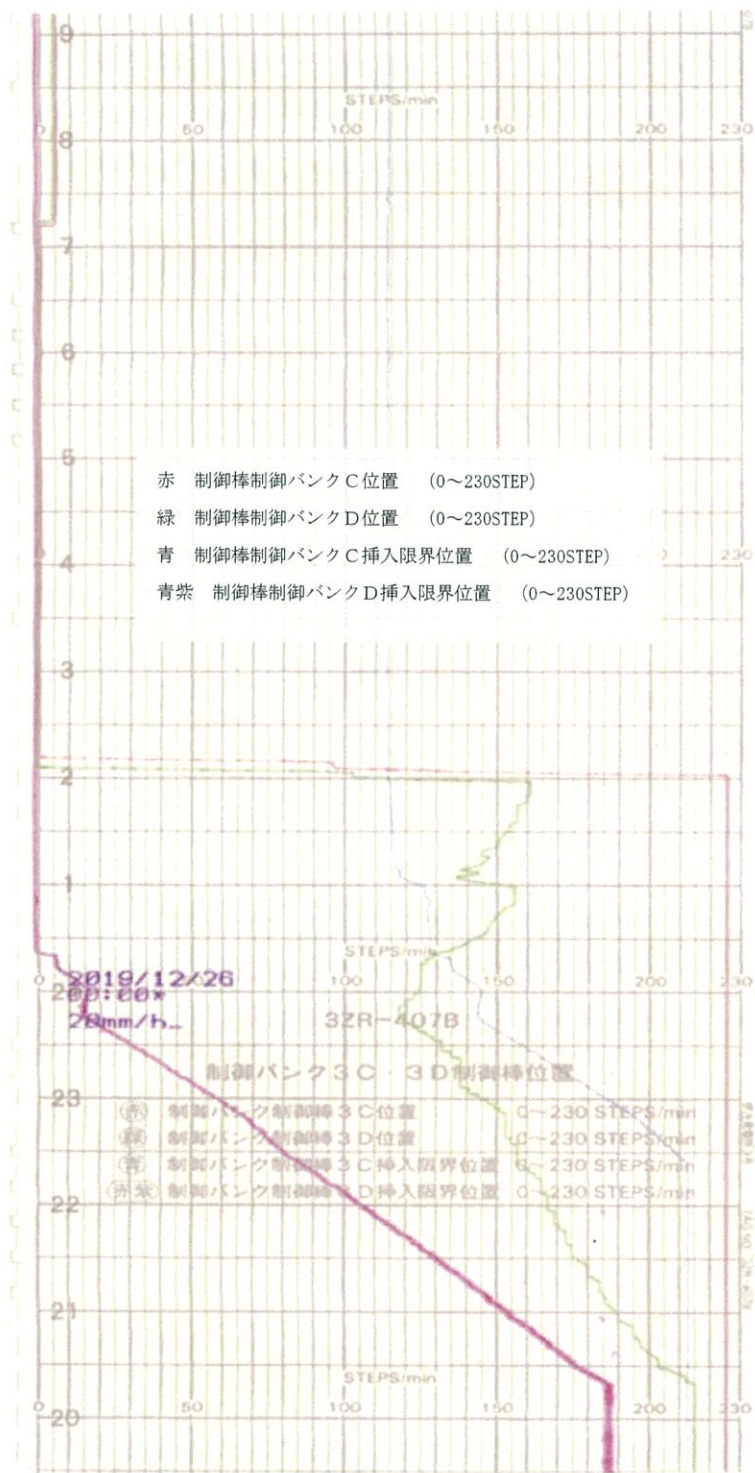 9
STEPS/min
0 50 100 150 200 230
8
7
6
5
赤 制御棒制御バンクC位置 (0～230STEP)
緑 制御棒制御バンクD位置 (0～230STEP)
青 制御棒制御バンクC挿入限界位置 (0～230STEP)
青紫 制御棒制御バンクD挿入限界位置 (0～230STEP)
4
3
2
1
STEPS/min
0 50 100 150 200 230
2019/12/26
00:00*
20mm/h
3ZR-407B
制御バンク3C・3D制御棒位置
23
赤 制御バンク制御棒3C位置 0～230 STEPS/min
緑 制御バンク制御棒3D位置 0～230 STEPS/min
青 制御バンク制御棒3C挿入限界位置 0～230 STEPS/min
赤紫 制御バンク制御棒3D挿入限界位置 0～230 STEPS/min
22
21
STEPS/min
0 50 100 150 200 230
20